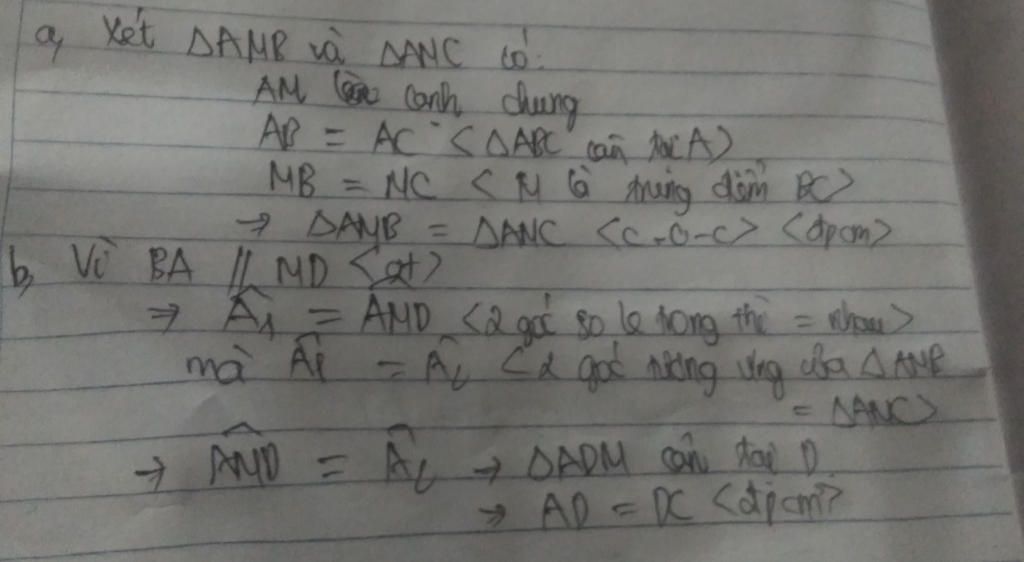 a, Xét ΔAMB và ΔANC có:
AM là canh chung
AB = AC <ΔABC cân tại A>
MB = MC < M là trung điểm BC>
→ ΔAMB = ΔANC <c-c-c> <đpcm>
b, Vì BA // MD <gt>
⇒ Â₁ = AMD <2 góc so le trong thì = nhau>
mà Â₁ = Â₂ <2 góc tương ứng của ΔAMB
= ΔANC>
→ AMD = Â₂ → ΔADM cân tại D.
→ AD = DC <đpcm>